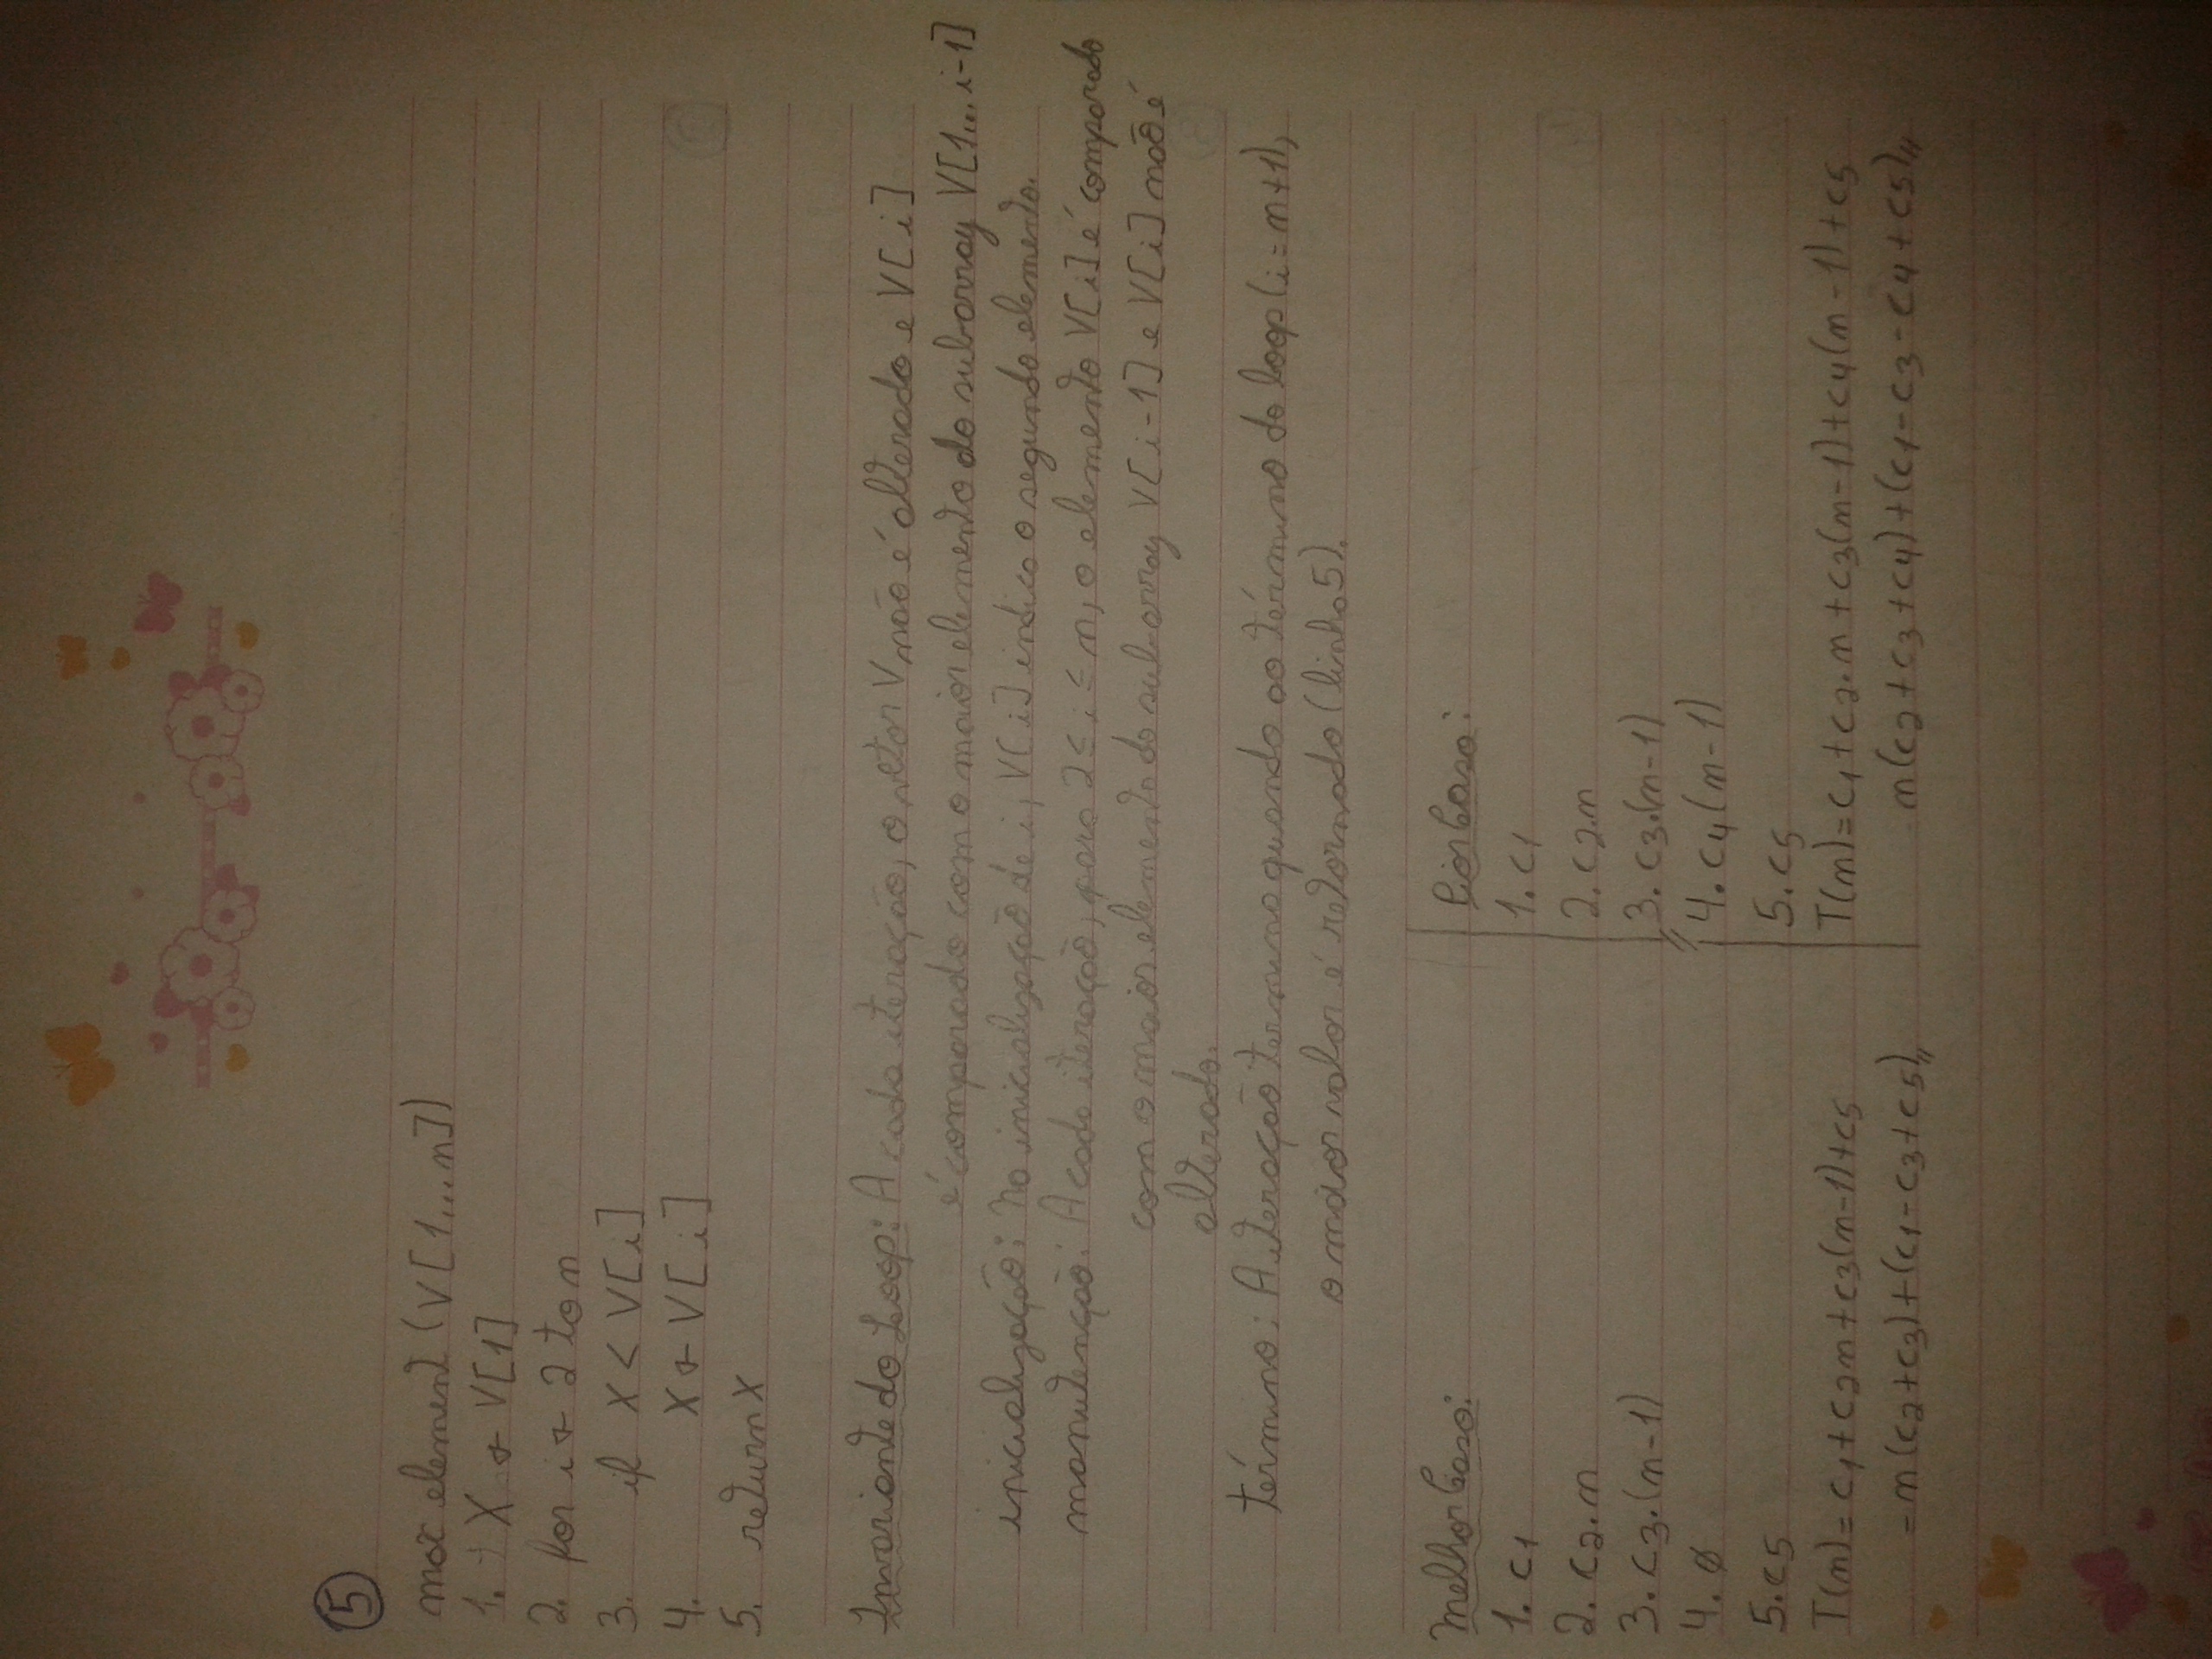 5
max element (V[1...n])
1. X ← V[1]
2. for i ← 2 to n
3. if X < V[i]
4. X ← V[i]
5. return X
Invariante do Loop: A cada iteração, o vetor V não é alterado e V[i]
é comparado com o maior elemento do sub-array V[1... i-1]
inicialização: Na inicialização de i, V[i] indica o segundo elemento.
manutenção: A cada iteração, para 2 ≤ i ≤ n, o elemento V[i] é comparado
com o maior elemento do sub-array V[i-1] e V[i] não é
alterado.
término: A iteração termina quando ao término do loop (i = n+1),
o maior valor é retornado (linha 5).
Melhor Caso:
1. c1
2. c2.n
3. c3.(n-1)
4. ø
5. c5
T(n) = c1 + c2n + c3(n-1) + c5
= n(c2 + c3) + (c1 - c3 + c5)//
Pior Caso:
1. c1
2. c2.n
3. c3.(n-1)
4. c4(n-1)
5. c5
T(n) = c1 + c2.n + c3(n-1) + c4(n-1) + c5
n(c2 + c3 + c4) + (c1 - c3 - c4 + c5)//